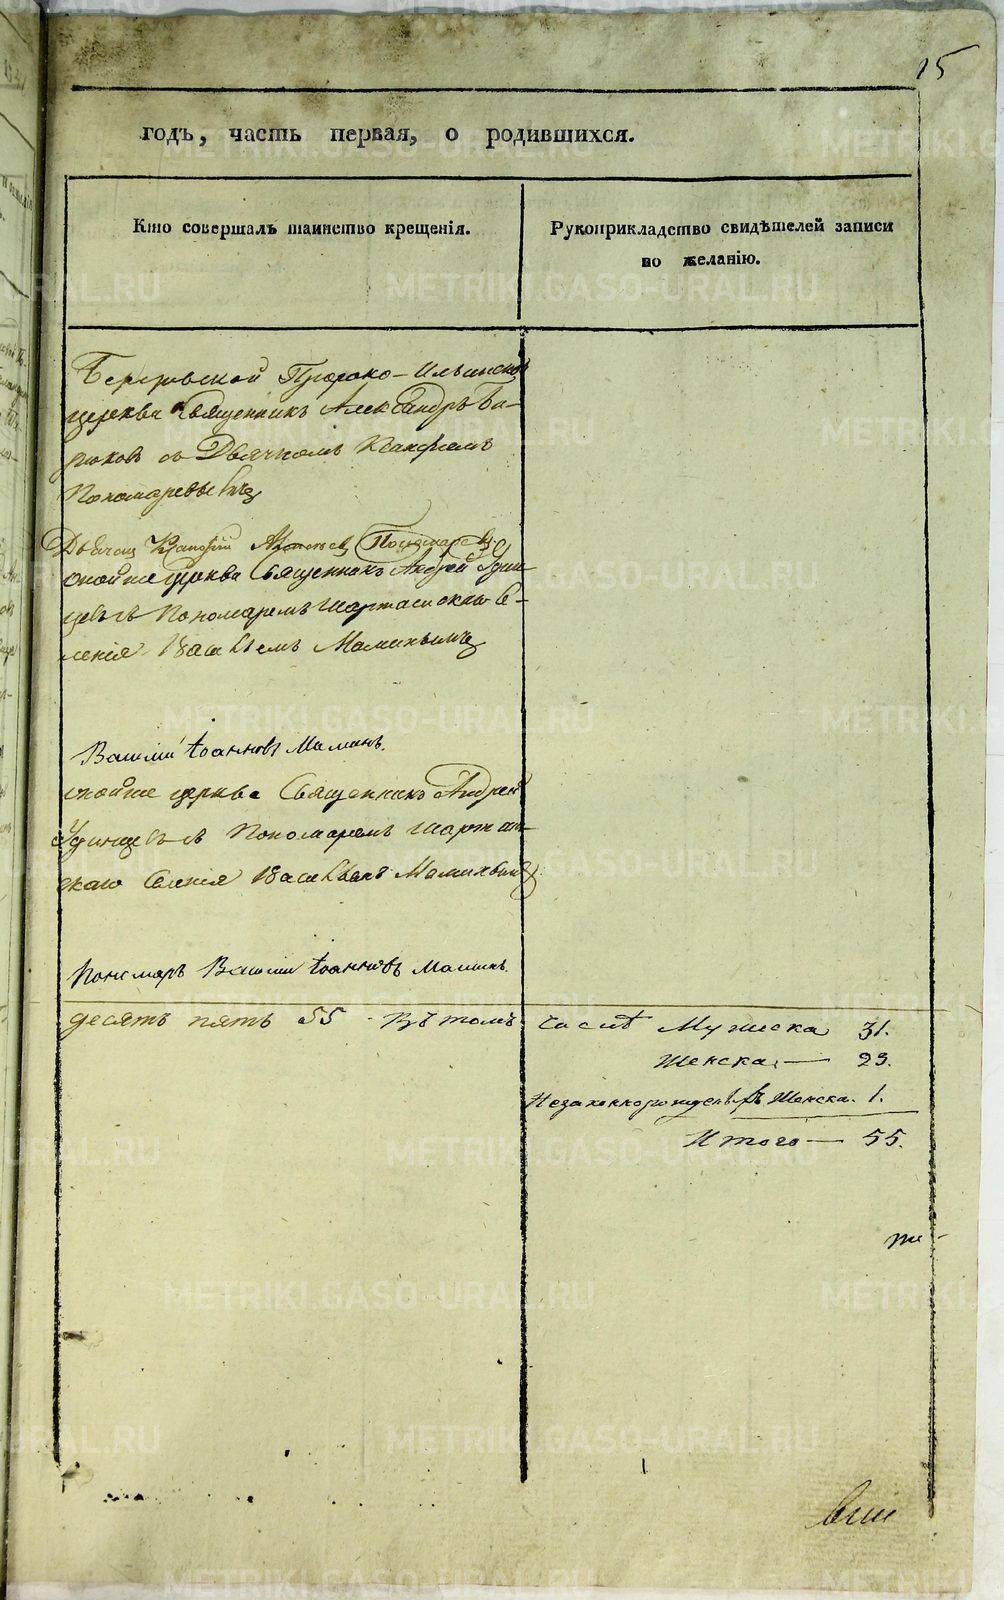 15
годъ, часть первая, о родившихся.
Кто совершалъ таинство крещенія.
Рукоприкладство свидѣтелей записи
по желанію.
Березовской Пророко-Ильинской
церкви Священникъ Александръ Би-
рюковъ съ Дьячкомъ
Пономаревымъ
Дьячец Пономаревъ
оной же церкви Священникъ Андрей Удин-
цевъ съ Пономаремъ Шарташскаго Се-
ленія Васильемъ Маминымъ
Василій Іоанновъ Маминъ.
оной же церкви Священникъ Андрей
Удинцевъ съ Пономаремъ Шарташ-
скаго Селенія Васильемъ Маминымъ
Пономарь Василій Іоанновъ Маминъ.
десять пять 55 - Въ томъ числѣ Мужеска 31.
Женска, — 23.
Незаконнорожден. Женска. 1.
Итого — 55.
METRIKI.GASO-URAL.RU